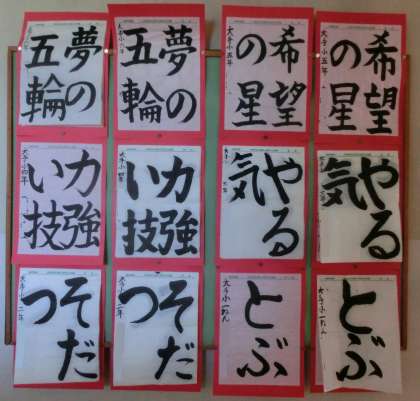 希望
の星
大子小五年
希望
の星
大子小五年
夢の
五輪
大子小六年
夢の
五輪
やる
気
やる
気
力強
い技
力強
い技
大子小四年
とぶ
大子小一ねん
とぶ
大子小一ねん
そだ
つ
大子小二年
そだ
つ
大子小二年